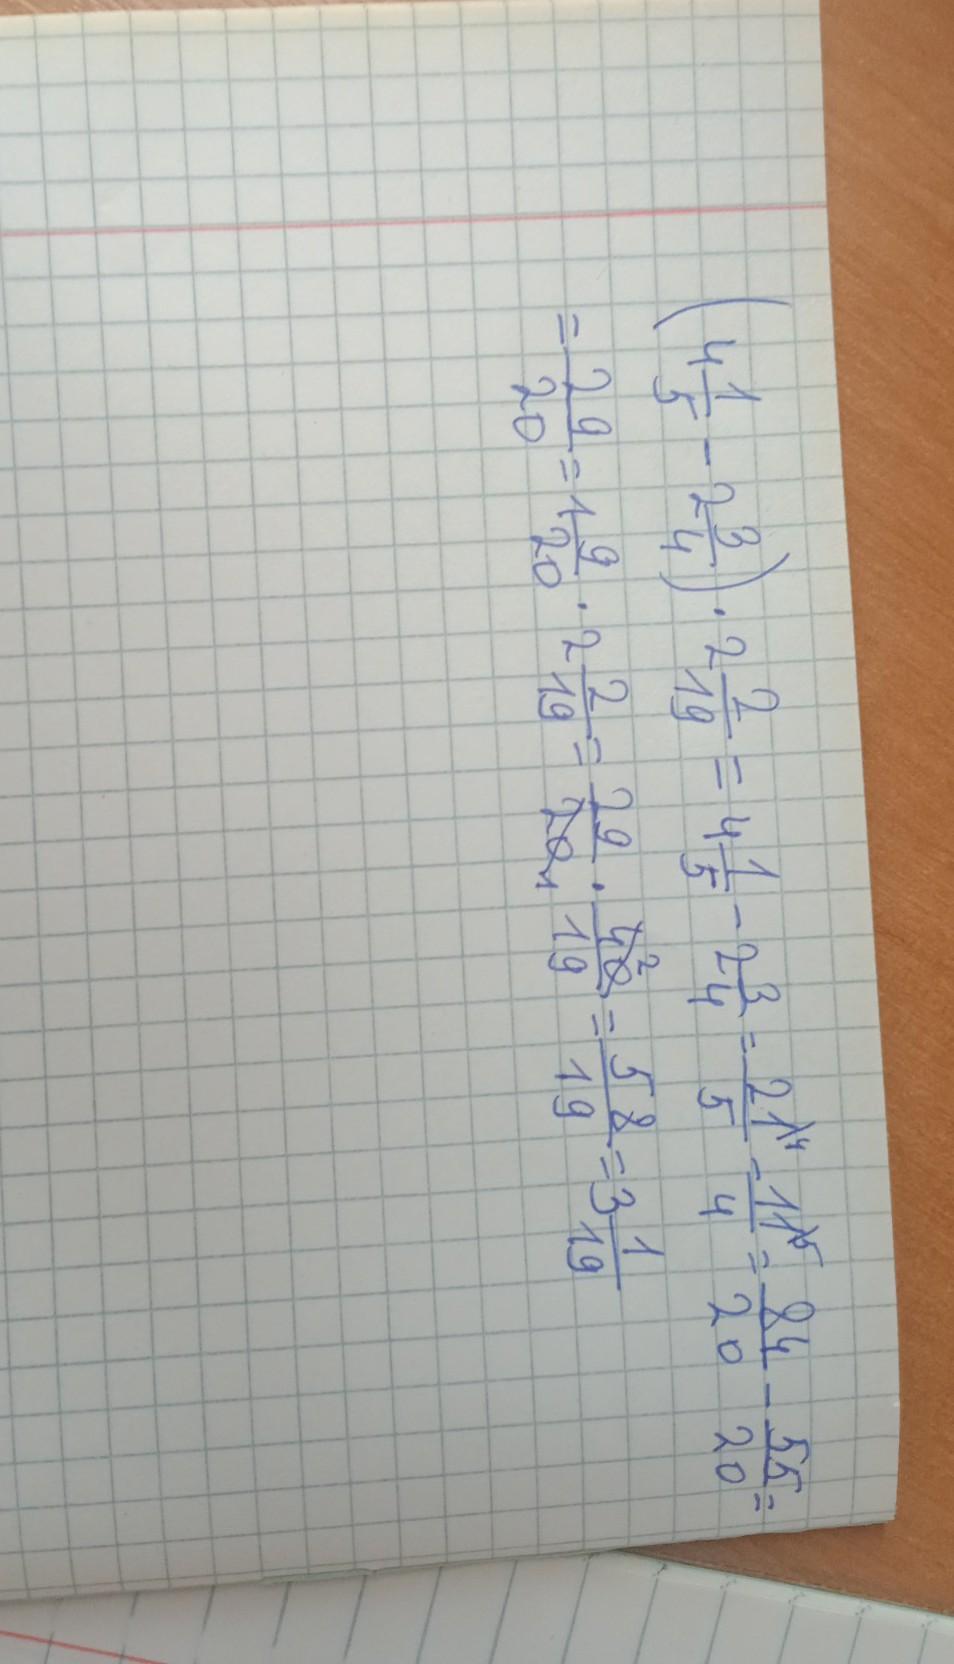 (4 1/5 - 2 3/4) · 2 2/19 = 4 1/5 - 2 3/4 = 21/5 ⁴ - 11/4 ⁵ = 84/20 - 55/20 =
= 29/20 = 1 9/20 · 2 2/19 = 29/20 ₁ · 40/19 ² = 58/19 = 3 1/19